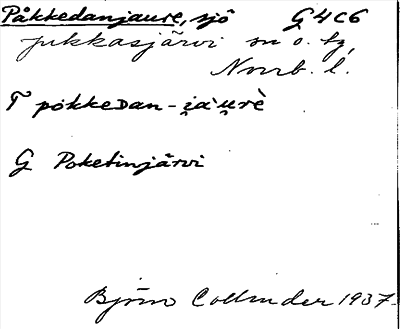 Påkkedanjaure, sjö G4c6
Jukkasjärvi sn o. tg,
Norrb. l.
T pȯkkeDan-i̯à'u̯rè
G Poketinjärvi
Björn Collinder 1937.